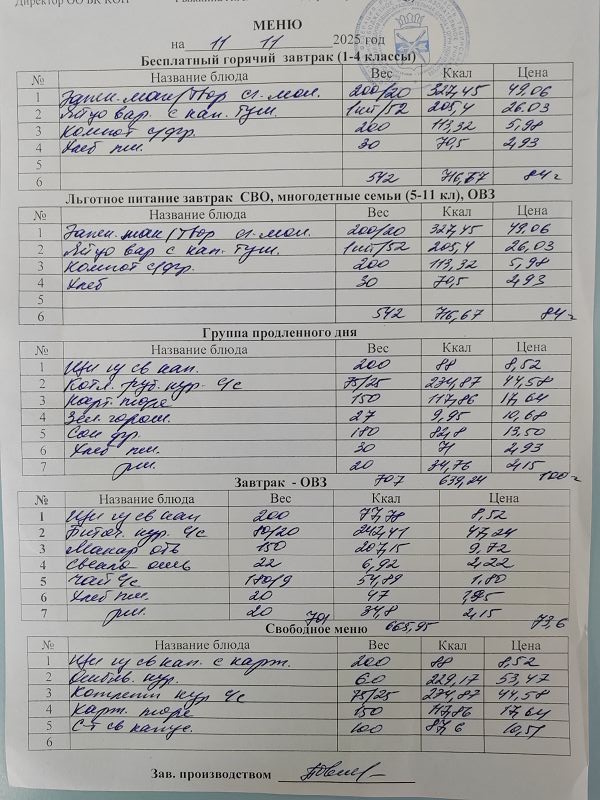 Директор ОО ВК КОП
МЕНЮ
на 11 11 2025 год
Бесплатный горячий завтрак (1-4 классы)
№ Название блюда Вес Ккал Цена
1 Запек. ман/твор сг.мол. 200/20 327,45 49.06
2 Яйцо вар. с кап. туш. 1шт/52 205,4 26.03
3 Компот с/фр. 200 113,32 5,98
4 Хлеб пш. 30 70,5 2,93
5
6 542 716,67 84
Льготное питание завтрак СВО, многодетные семьи (5-11 кл), ОВЗ
№ Название блюда Вес Ккал Цена
1 Запек. ман/твор сг.мол. 200/20 327,45 49.06
2 Яйцо вар с кап. туш. 1шт/52 205,4 26,03
3 Компот с/фр. 200 113,32 5,98
4 Хлеб 30 70,5 2,93
5
6 542 716,67 84
Группа продленного дня
№ Название блюда Вес Ккал Цена
1 Щи из св кап. 200 88 8,52
2 Котл. руб. кур. ч/с 75/25 234,87 44,58
3 Карт. пюре 150 117,86 17,64
4 Зел. горош. 27 9,95 10,68
5 Сок фр. 180 82,8 13,50
6 Хлеб пш. 30 71 2,93
7 рж. 20 34,76 2,15
707 639,24 100
Завтрак - ОВЗ
№ Название блюда Вес Ккал Цена
1 Щи из св кап 200 77,78 8,52
2 Биточ. кур. ч/с 80/20 242,41 47,24
3 Макар отв 150 207,15 9,72
4 Свекла 22 6,92 2,22
5 Чай ч/с 180/9 54,89 1,80
6 Хлеб пш. 20 47 1,95
7 рж. 20 34,8 2,15
701 665,95 73,6
Свободное меню
№ Название блюда Вес Ккал Цена
1 Щи из св кап. с карт. 200 88 8,52
2 кур. 60 229,17 53,47
3 кур ч/с 75/25 234,87 44,58
4 Карт. пюре 150 117,86 17,64
5 СТ св капус. 100 87,6 10,51
6
Зав. производством